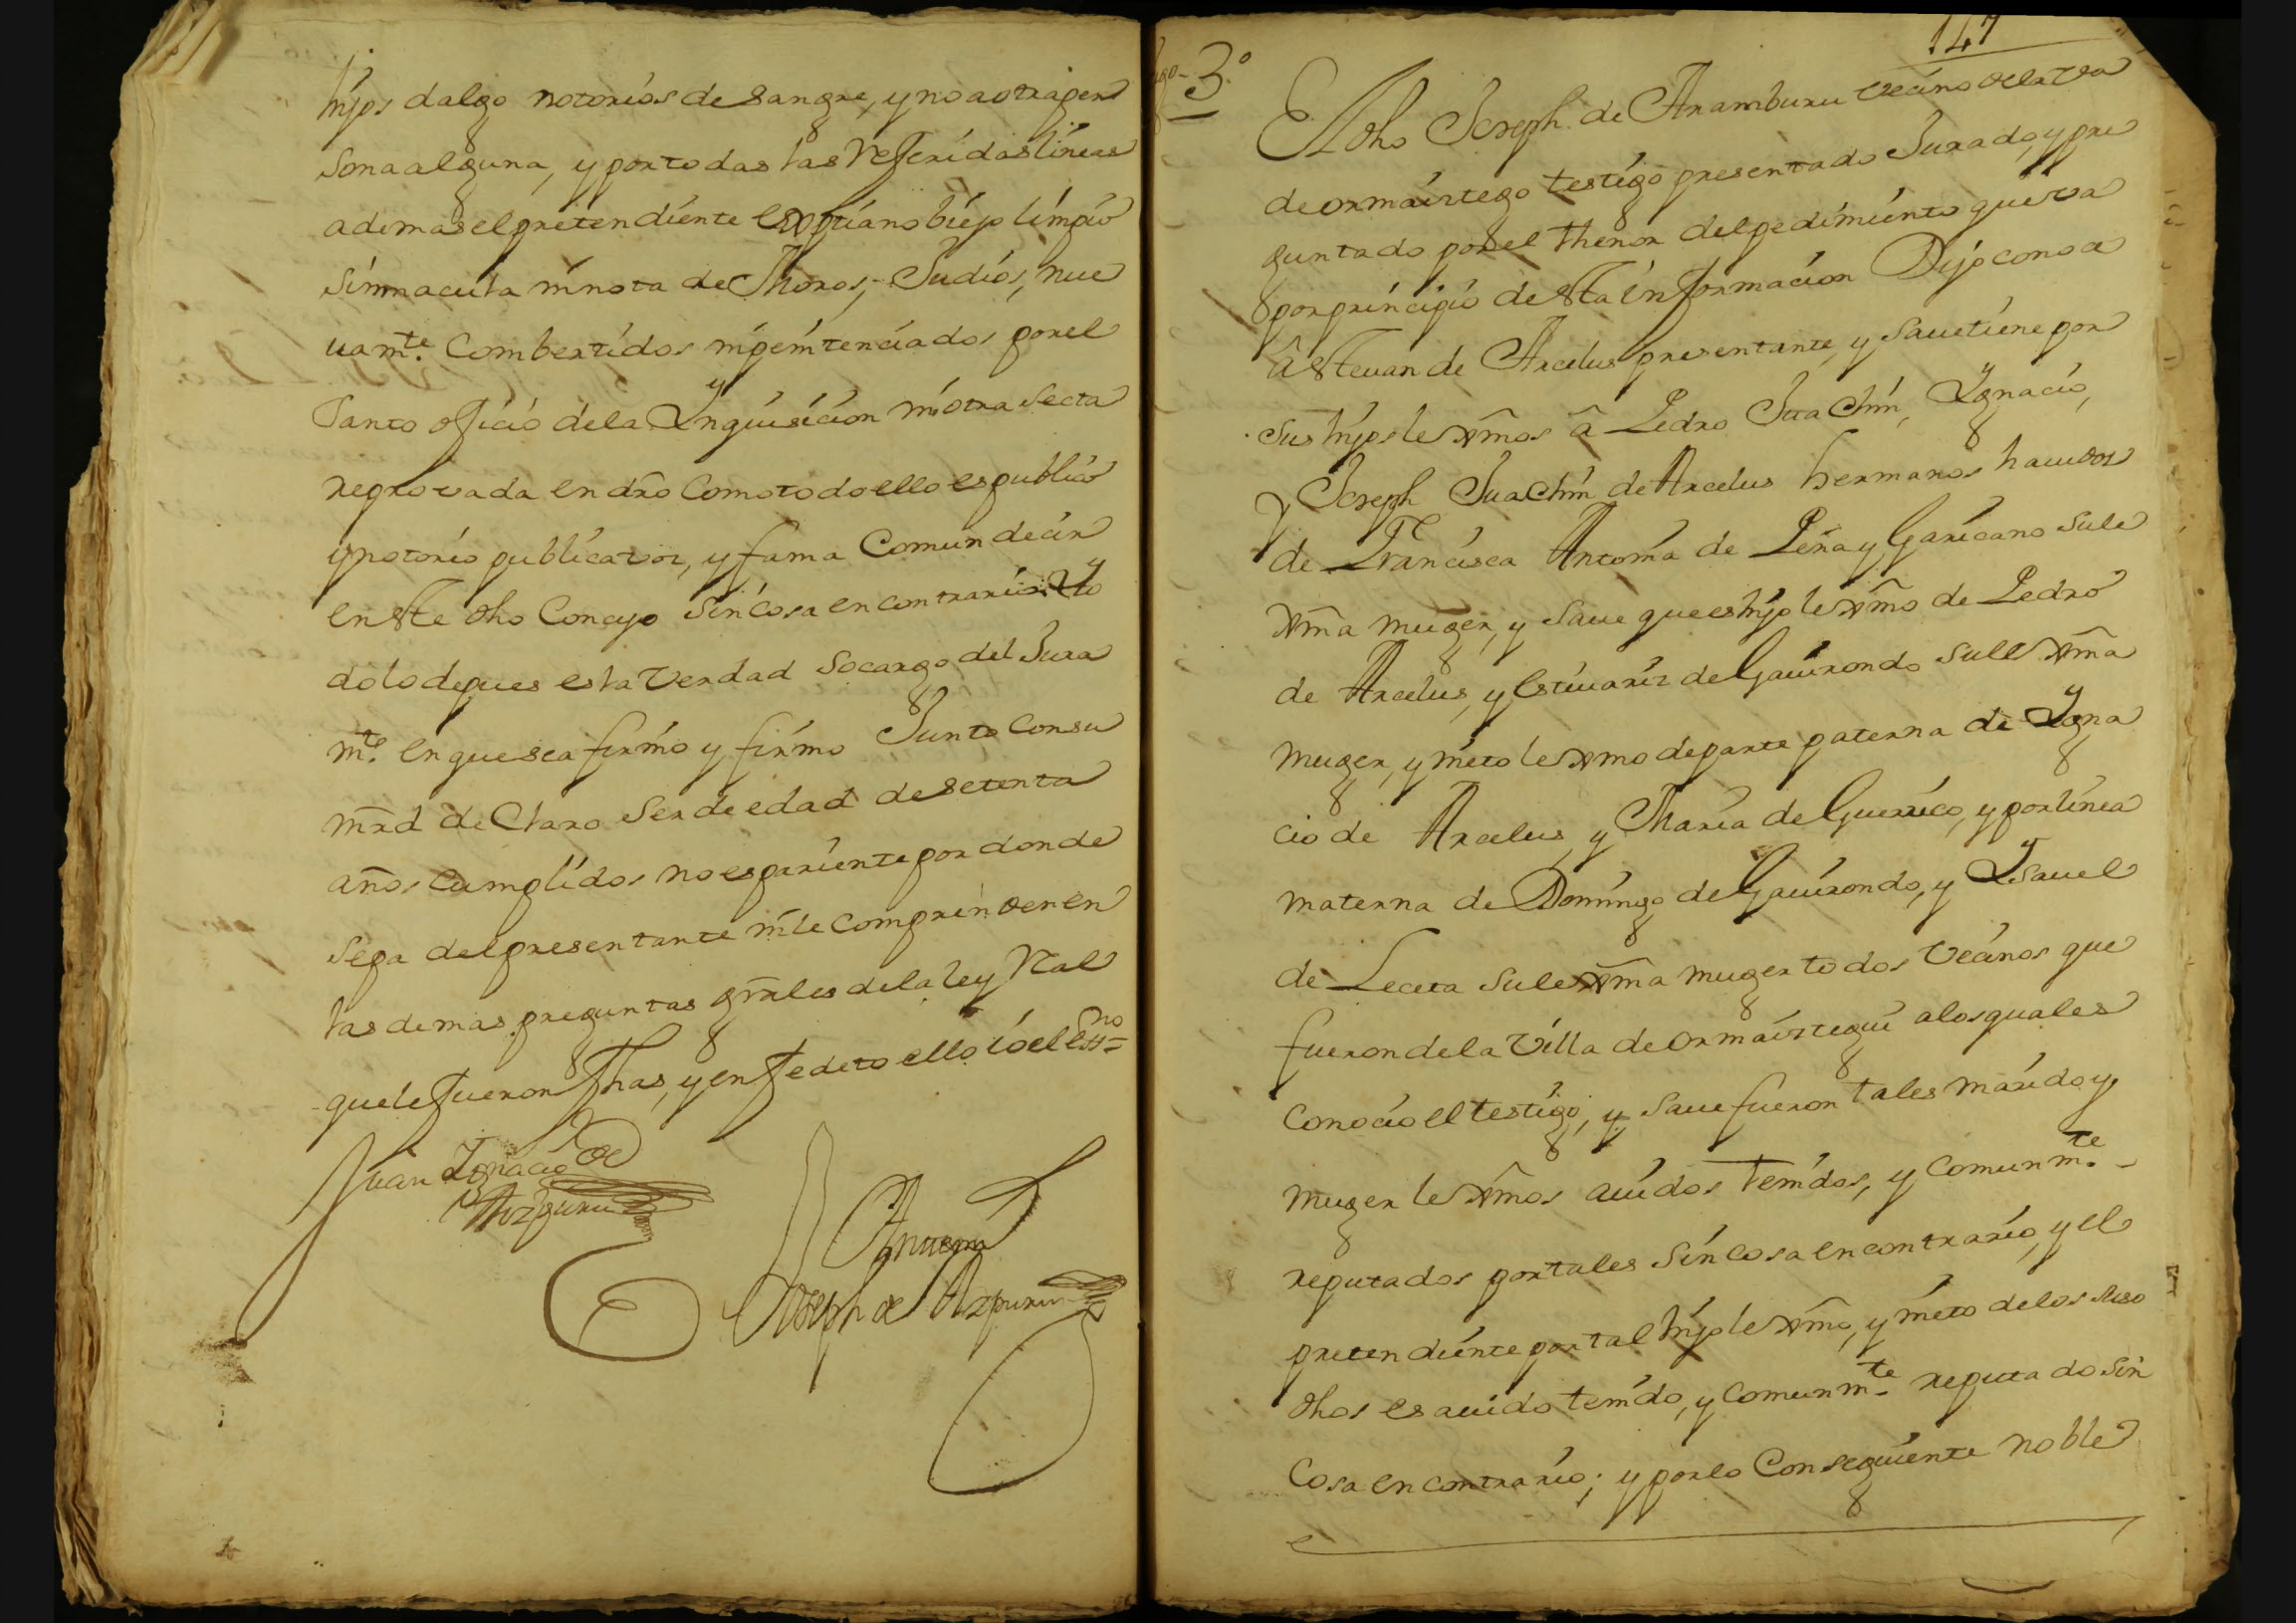 hijos dalgo notorios de sangre, y no a otra per
sona alguna, y por todas las Referidas lineas
ademas el pretendiente es Xptiano biejo limpio
sin macula ni nota de Moros, Judios, nue
uamte. Combertidos ni penitenciados por el
Santo oficio de la Ynquisicion ni otra Secta
reprovada en dro Como todo ello es publico
y notorio publica voz, y fama Comun decir
en Ste dho Concejo sin cosa en contrario: Y to
do lo depues es la Verdad Socargo del Jura
mto. en que se afirmo y firmo Junto Con su
mrd declaro Ser de edad de setenta
años Cumplidos no es pariente por donde
sepa del presentante ni le Comprenden en
las demas preguntas gnrles de la ley Real
que le fueron fhas, y en fe de to ello io el Essno=
Juan Ignacio de
Aizpuru
Antemi
Joseph de Aizpuru
147
tigo- 3.º
El dho Joseph de Aramburu Vecino de la Va
de ormaiztego testigo presentado Jurado, y pre
guntado por el thenor del pedimiento que va
por principio de Sta informacion Dijo conoce
â Steuan de Arcelus presentante, y Saue tiene por
sus hijos lexmos â Pedro Juachin, Ygnacio,
y Joseph Juachin de Arcelus hermanos hauidos
de Francisca Antonia de Peña y Garicano Su le
xma muger, y Saue que es hijo lexmo de Pedro
de Arcelus, y Estiuariz de Gauirondo Su lexma
muger, y nieto lexmo de parte paterna de Ygna
cio de Arcelus y Maria de Guerrico, y por linea
materna de Domingo de Gauirondo, y Ysauel
de Leceta Su lexma muger todos Vecinos que
fueron de la Villa de ormaiztegui a los quales
Conocio el testigo, y Saue fueron tales marido y
muger lexmos auidos tenidos, y Comunmte.
reputados por tales Sin Cosa en contrario, y el
pretendiente por tal hijo lexmo, y nieto de los suso
dhos es auido tenido, y Comunmte reputado Sin
Cosa en contrario; y por lo Consequiente noble